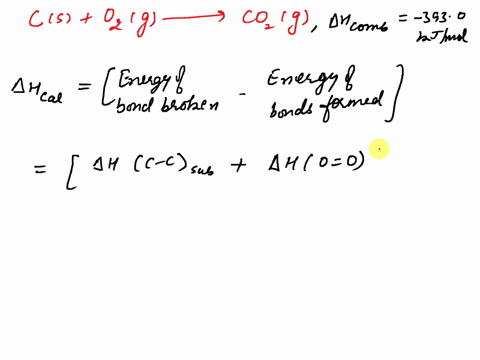 C(s) + O₂(g) ⟶ CO₂(g), ΔH comb = -393.0 kJ/mol
ΔH cal = [Energy of bond broken - Energy of bonds formed]
= [ ΔH (C-C)sub + ΔH(O=O)